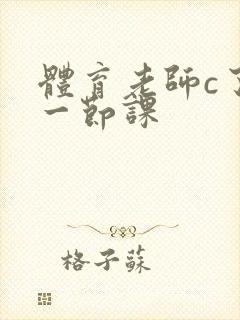 體育老師c了
一節課
格子蘇